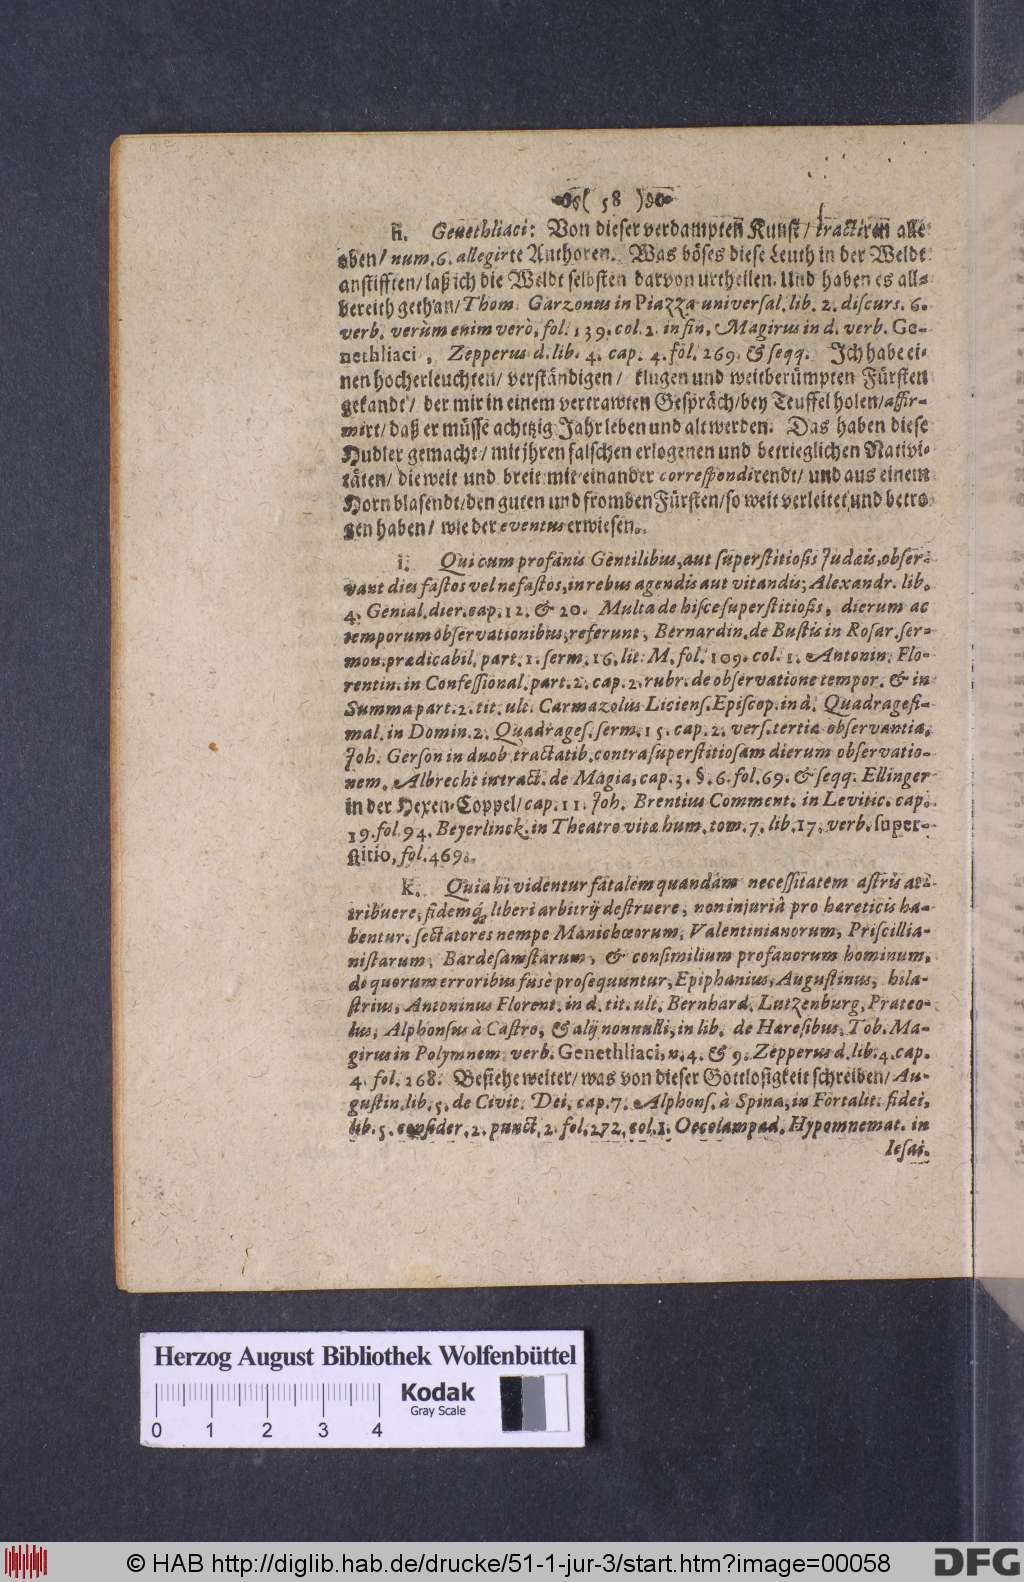 ( 58 )
h. Genethliaci: Von dieser verdampten Kunst/ tractiren alle
oben/ num. 6. allegirte Authoren. Was böses diese Leuth in der Weldt
anstifften/ laß ich die Weldt selbsten darvon urtheilen. Und haben es all-
bereith gethan/ Thom. Garzonus in Piazza universal. lib. 2. discurs. 6.
verb. verùm enim verò, fol. 139. col. 2. in fin. Magirus in d. verb. Ge-
nethliaci, Zepperus d. lib. 4. cap. 4. fol. 269. & seqq. Ich habe ei-
nen hocherleuchten/ verständigen/ klugen und weitberümpten Fürsten
gekandt/ der mir in einem vertrawten Gespräch/ bey Teuffel holen/ affir-
mirt/ daß er müsse achtzig Jahr leben und alt werden. Das haben diese
Hudler gemacht/ mit jhren falschen erlogenen und betrieglichen Nativi-
täten/ die weit und breit mit einander correspondirendt/ und aus einem
Horn blasendt/ den guten und fromben Fürsten/ so weit verleitet und betro-
gen haben/ wie der eventus erwiesen.
i. Qui cum profanis Gentilibus, aut superstitiosis Judæis, obser-
vant dies fastos vel nefastos, in rebus agendis aut vitandis; Alexandr. lib.
4. Genial. dier. cap. 12. & 20. Multa de hisce superstitiosis, dierum ac
temporum observationibus, referunt, Bernardin. de Bustis in Rosar. ser-
mon. prædicabil. part. 1. serm. 16. lit. M. fol. 109. col. 1. Antonin. Flo-
rentin. in Confessional. part. 2. cap. 2. rubr. de observatione tempor. & in
Summa part. 2. tit. ult. Carmazolus Liciens. Episcop. in d. Quadragesi-
mal. in Domin. 2. Quadrages. serm. 15. cap. 2. vers. tertia observantia.
Joh. Gerson in duob. tractatib. contra superstitiosam dierum observatio-
nem. Albrecht in tract. de Magia, cap. 3. §. 6. fol. 69. & seqq. Ellinger
in der Hexen-Coppel/ cap. 11. Joh. Brentius Comment. in Levitic. cap.
19. fol. 94. Beyerlinck. in Theatro vitæ hum. tom. 7. lib. 17. verb. super-
stitio, fol. 469.
k. Quia hi videntur fatalem quandam necessitatem astris at-
tribuere, fidemq́; liberi arbitrij destruere, non injuriâ pro hæreticis ha-
bentur. sectatores nempe Manichœorum, Valentinianorum, Priscillia-
nistarum, Bardesanistarum, & consimilium profanorum hominum,
de quorum erroribus fusè prosequuntur, Epiphanius, Augustinus, hila-
strius, Antoninus Florent. in d. tit. ult. Bernhard. Lutzenburg, Prateo-
lus, Alphonsus à Castro, & alij nonnulli, in lib. de Hæresibus, Tob. Ma-
girus in Polymnem. verb. Genethliaci, n. 4. & 9. Zepperus d. lib. 4. cap.
4. fol. 268. Besiehe weiter/ was von dieser Gottlosigkeit schreiben/ Au-
gustin. lib. 5. de Civit. Dei, cap. 7. Alphons. à Spina, in Fortalit. fidei,
lib. 5. consider. 2. punct. 2. fol. 272. col. 1. Oecolampad. Hypomnemat. in
Iesai.
Herzog August Bibliothek Wolfenbüttel
Kodak
Gray Scale
0 1 2 3 4
© HAB http://diglib.hab.de/drucke/51-1-jur-3/start.htm?image=00058
DFG